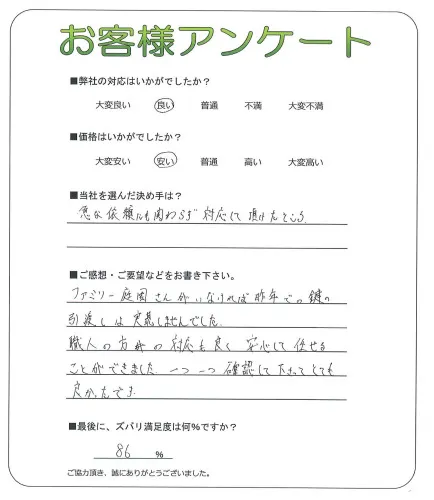 お客様アンケート
■弊社の対応はいかがでしたか？
大変良い 良い 普通 不満 大変不満
■価格はいかがでしたか？
大変安い 安い 普通 高い 大変高い
■当社を選んだ決め手は？
急な依頼にも関わらず対応して頂けたところ
■ご感想・ご要望などをお書き下さい。
ファミリー庭園さんがいなければ昨年での鍵の
引渡しは実現しませんでした。
職人の方々の対応も良く安心して任せる
ことができました。一つ一つ確認して下さってとても
良かったです。
■最後に、ズバリ満足度は何%ですか？
86 %
ご協力頂き、誠にありがとうございました。